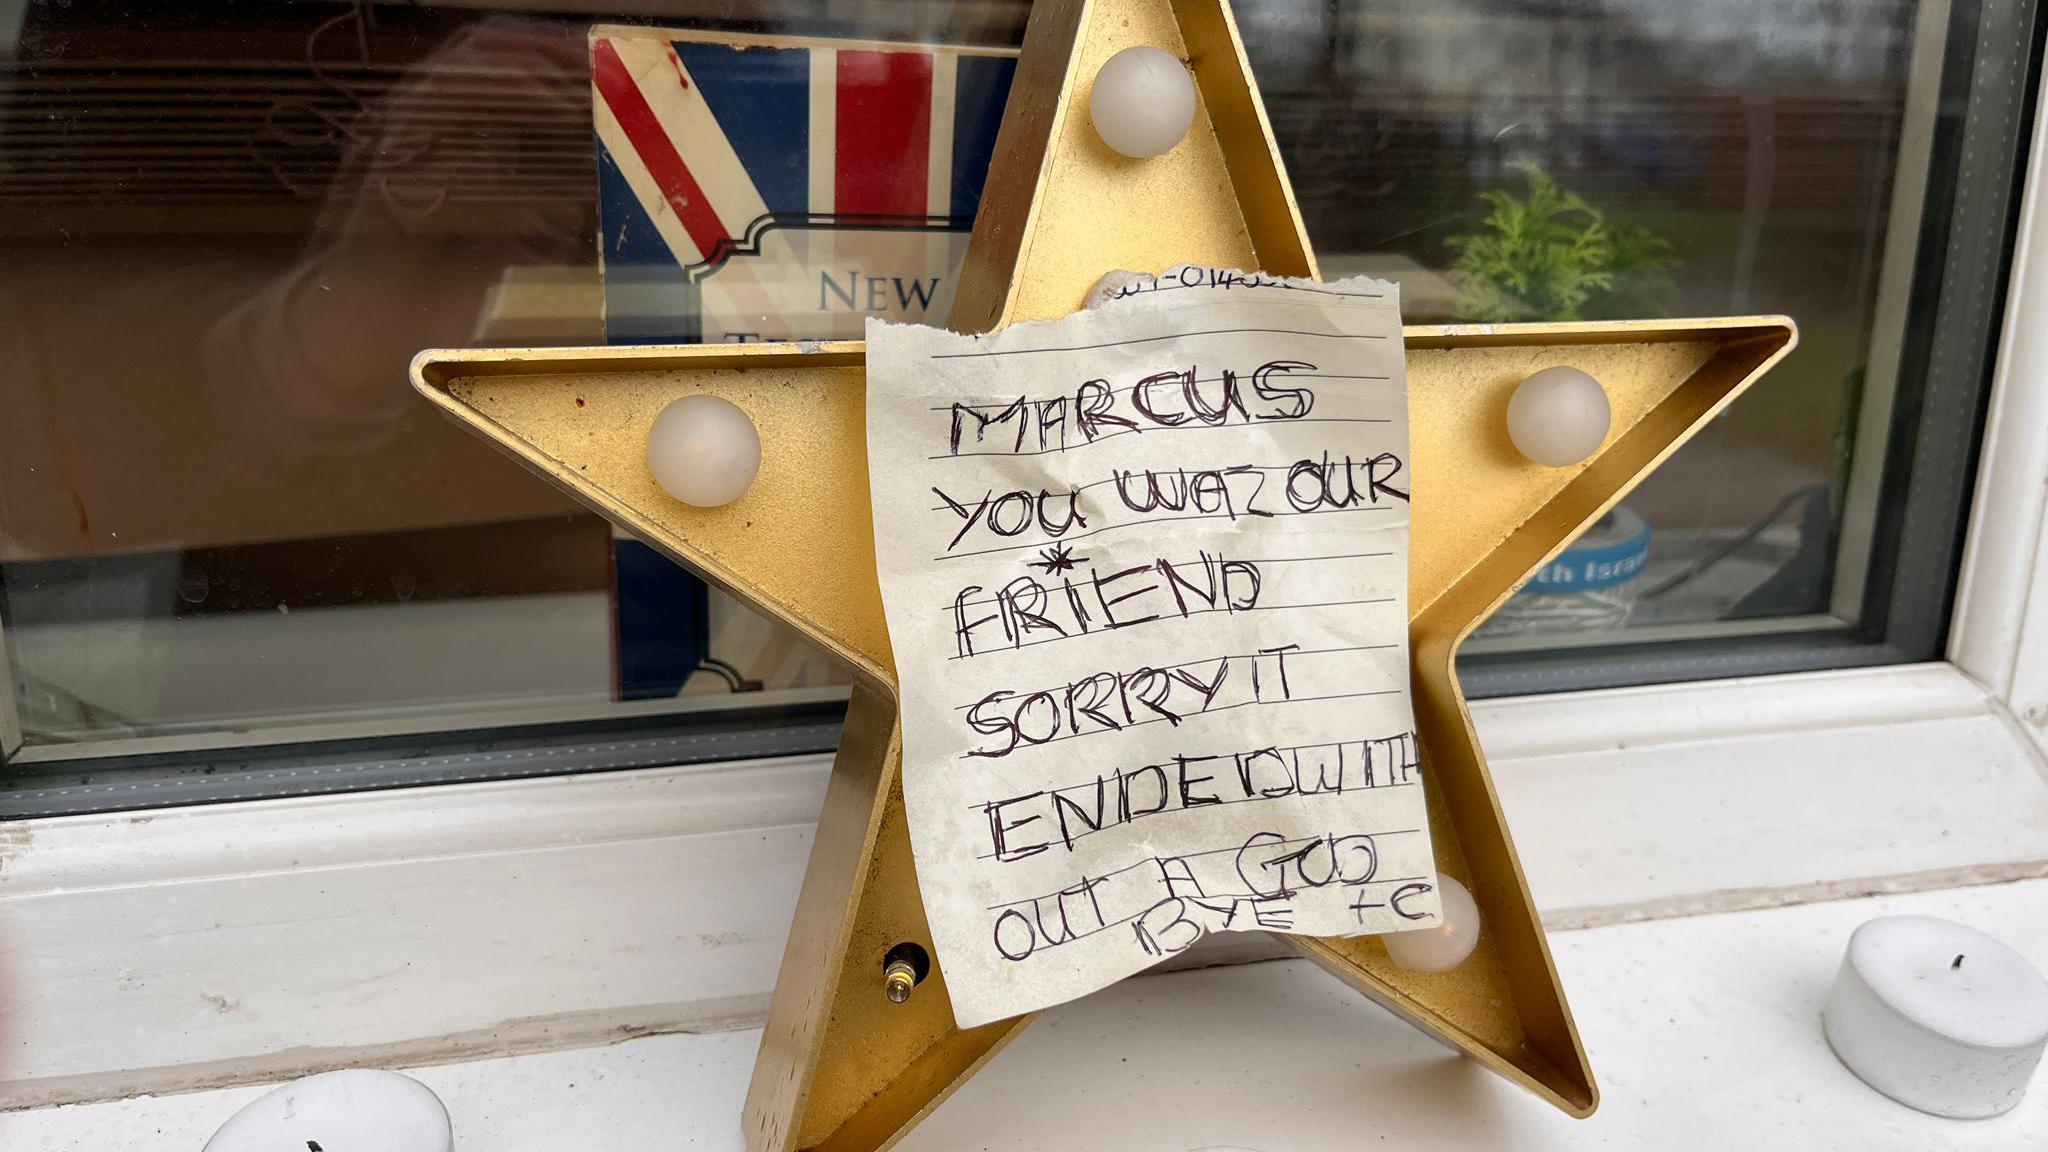 NEW
MARCUS
YOU WAZ OUR
FRIEND
SORRY IT
ENDED WITH
OUT A GOD
BYE +C
th Isra